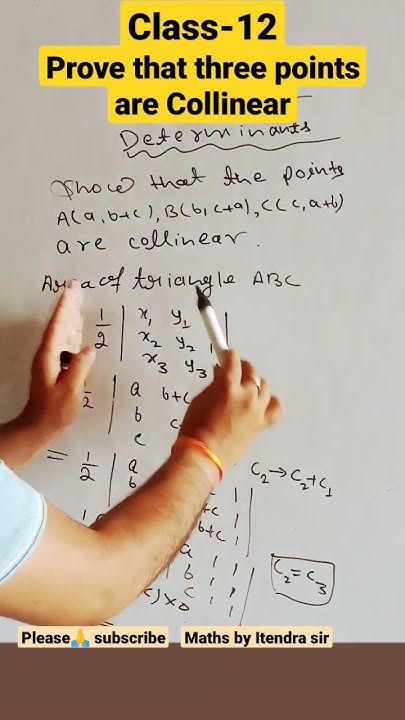 Class-12
Prove that three points
are Collinear
Determinants
Show that the points
A(a, b+c), B(b, c+a), C(c, a+b)
are collinear.
Area of triangle ABC
1/2 | x₁ y₁ |
x₂ y₂ 1
x₃ y₃
1/2 | a b+c
b c
c
= 1/2 | a 1 C₂→C₂+C₁
b 1
+c 1
b+c 1
a 1 1
b 1 C₂=C₃
c 1
Please🙏 subscribe Maths by Itendra sir